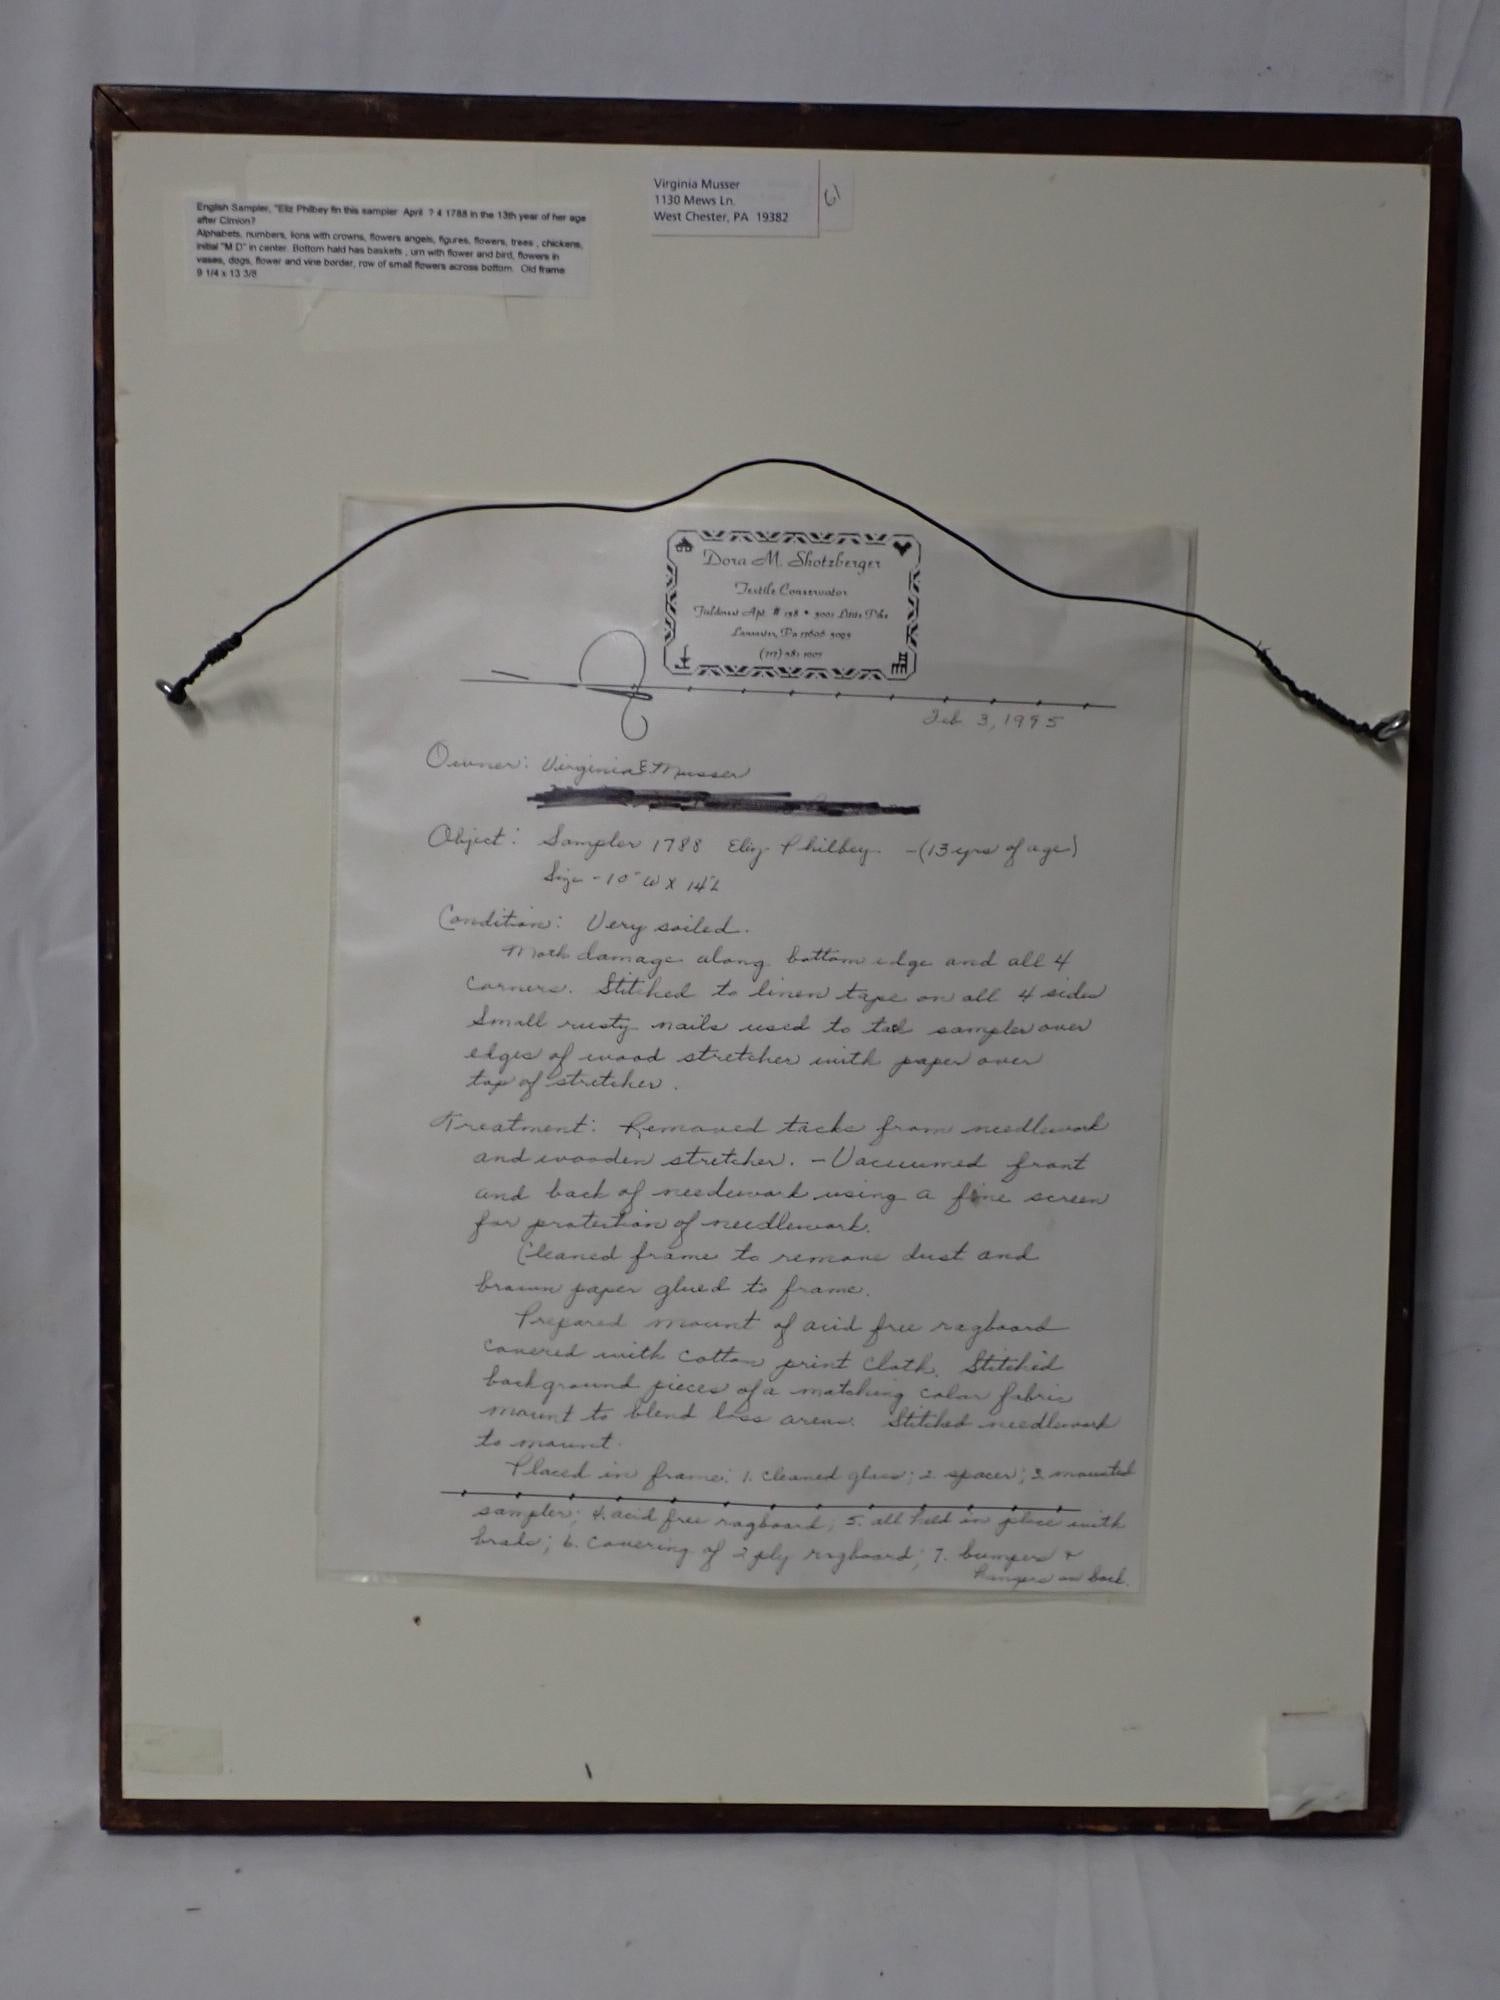 English Sampler, "Eliz Philbey fin this sampler April ? 4 1788 in the 13th year of her age
after Cimion?
Alphabets, numbers, lions with crowns, flowers angels, figures, flowers, trees , chickens,
initial "M D" in center. Bottom hald has baskets , urn with flower and bird, flowers in
vases, dogs, flower and vine border, row of small flowers across bottom. Old frame
9 1/4 x 13 3/8
Virginia Musser
1130 Mews Ln.
West Chester, PA 19382
61
Dora M. Shotzberger
Textile Conservator
Apt. #
Lancaster, Pa
(717)
Feb. 3, 1995
Owner: Virginia E. Musser
Object: Sampler 1788 Eliz. Philbey - (13 yrs of age)
Size - 10" W x 14" L
Condition: Very soiled.
Moth damage along bottom edge and all 4
corners. Stitched to linen tape on all 4 sides
Small rusty nails used to sampler over
edges of wood stretcher with paper over
top of stretcher.
Treatment: Removed tacks from needlework
and wooden stretcher. - Vacuumed front
and back of needework using a fine screen
for protection of needlework.
Cleaned frame to remove dust and
brown paper glued to frame.
Prepared mount of acid free ragboard
covered with cotton print cloth. Stitched
background pieces of a matching color fabric
mount to blend loss areas. Stitched needlework
to mount.
Placed in frame: 1. cleaned glass; 2. spacer; 3. mounted
sampler; 4. acid free ragboard; 5. all held in place with
brads; 6. covering of 2 ply ragboard; 7. bumpers +
hangers on back.